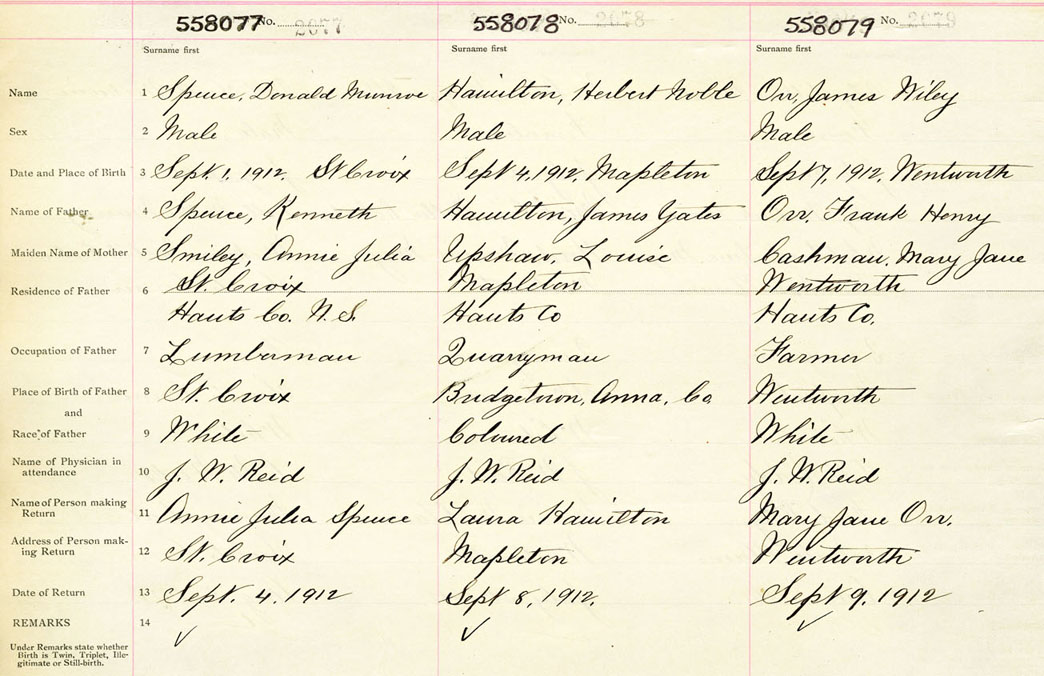 558077 No. 2077 558078 No. 2078 558079 No. 2079
Surname first Surname first Surname first
Name 1 Spence, Donald Munroe Hamilton, Herbert Noble Orr, James Wiley
Sex 2 Male Male Male
Date and Place of Birth 3 Sept. 1, 1912. St Croix Sept 4, 1912, Mapleton Sept 7, 1912, Wentworth
Name of Father 4 Spence, Kenneth Hamilton, James Yates Orr, Frank Henry
Maiden Name of Mother 5 Smiley, Annie Julia Upshaw, Louise Cashman, Mary Jane
Residence of Father 6 St. Croix Mapleton Wentworth
Hants Co. N.S. Hants Co Hants Co.
Occupation of Father 7 Lumberman Quarryman Farmer
Place of Birth of Father 8 St. Croix Bridgetown, Anna. Co. Wentworth
and
Race of Father 9 White Coloured White
Name of Physician in
attendance 10 J. W. Reid J. W. Reid J. W. Reid
Name of Person making
Return 11 Annie Julia Spence Laura Hamilton Mary Jane Orr.
Address of Person mak-
ing Return 12 St. Croix Mapleton Wentworth
Date of Return 13 Sept. 4. 1912 Sept 8, 1912. Sept 9. 1912
REMARKS 14
Under Remarks state whether
Birth is Twin, Triplet, Ille-
gitimate or Still-birth.